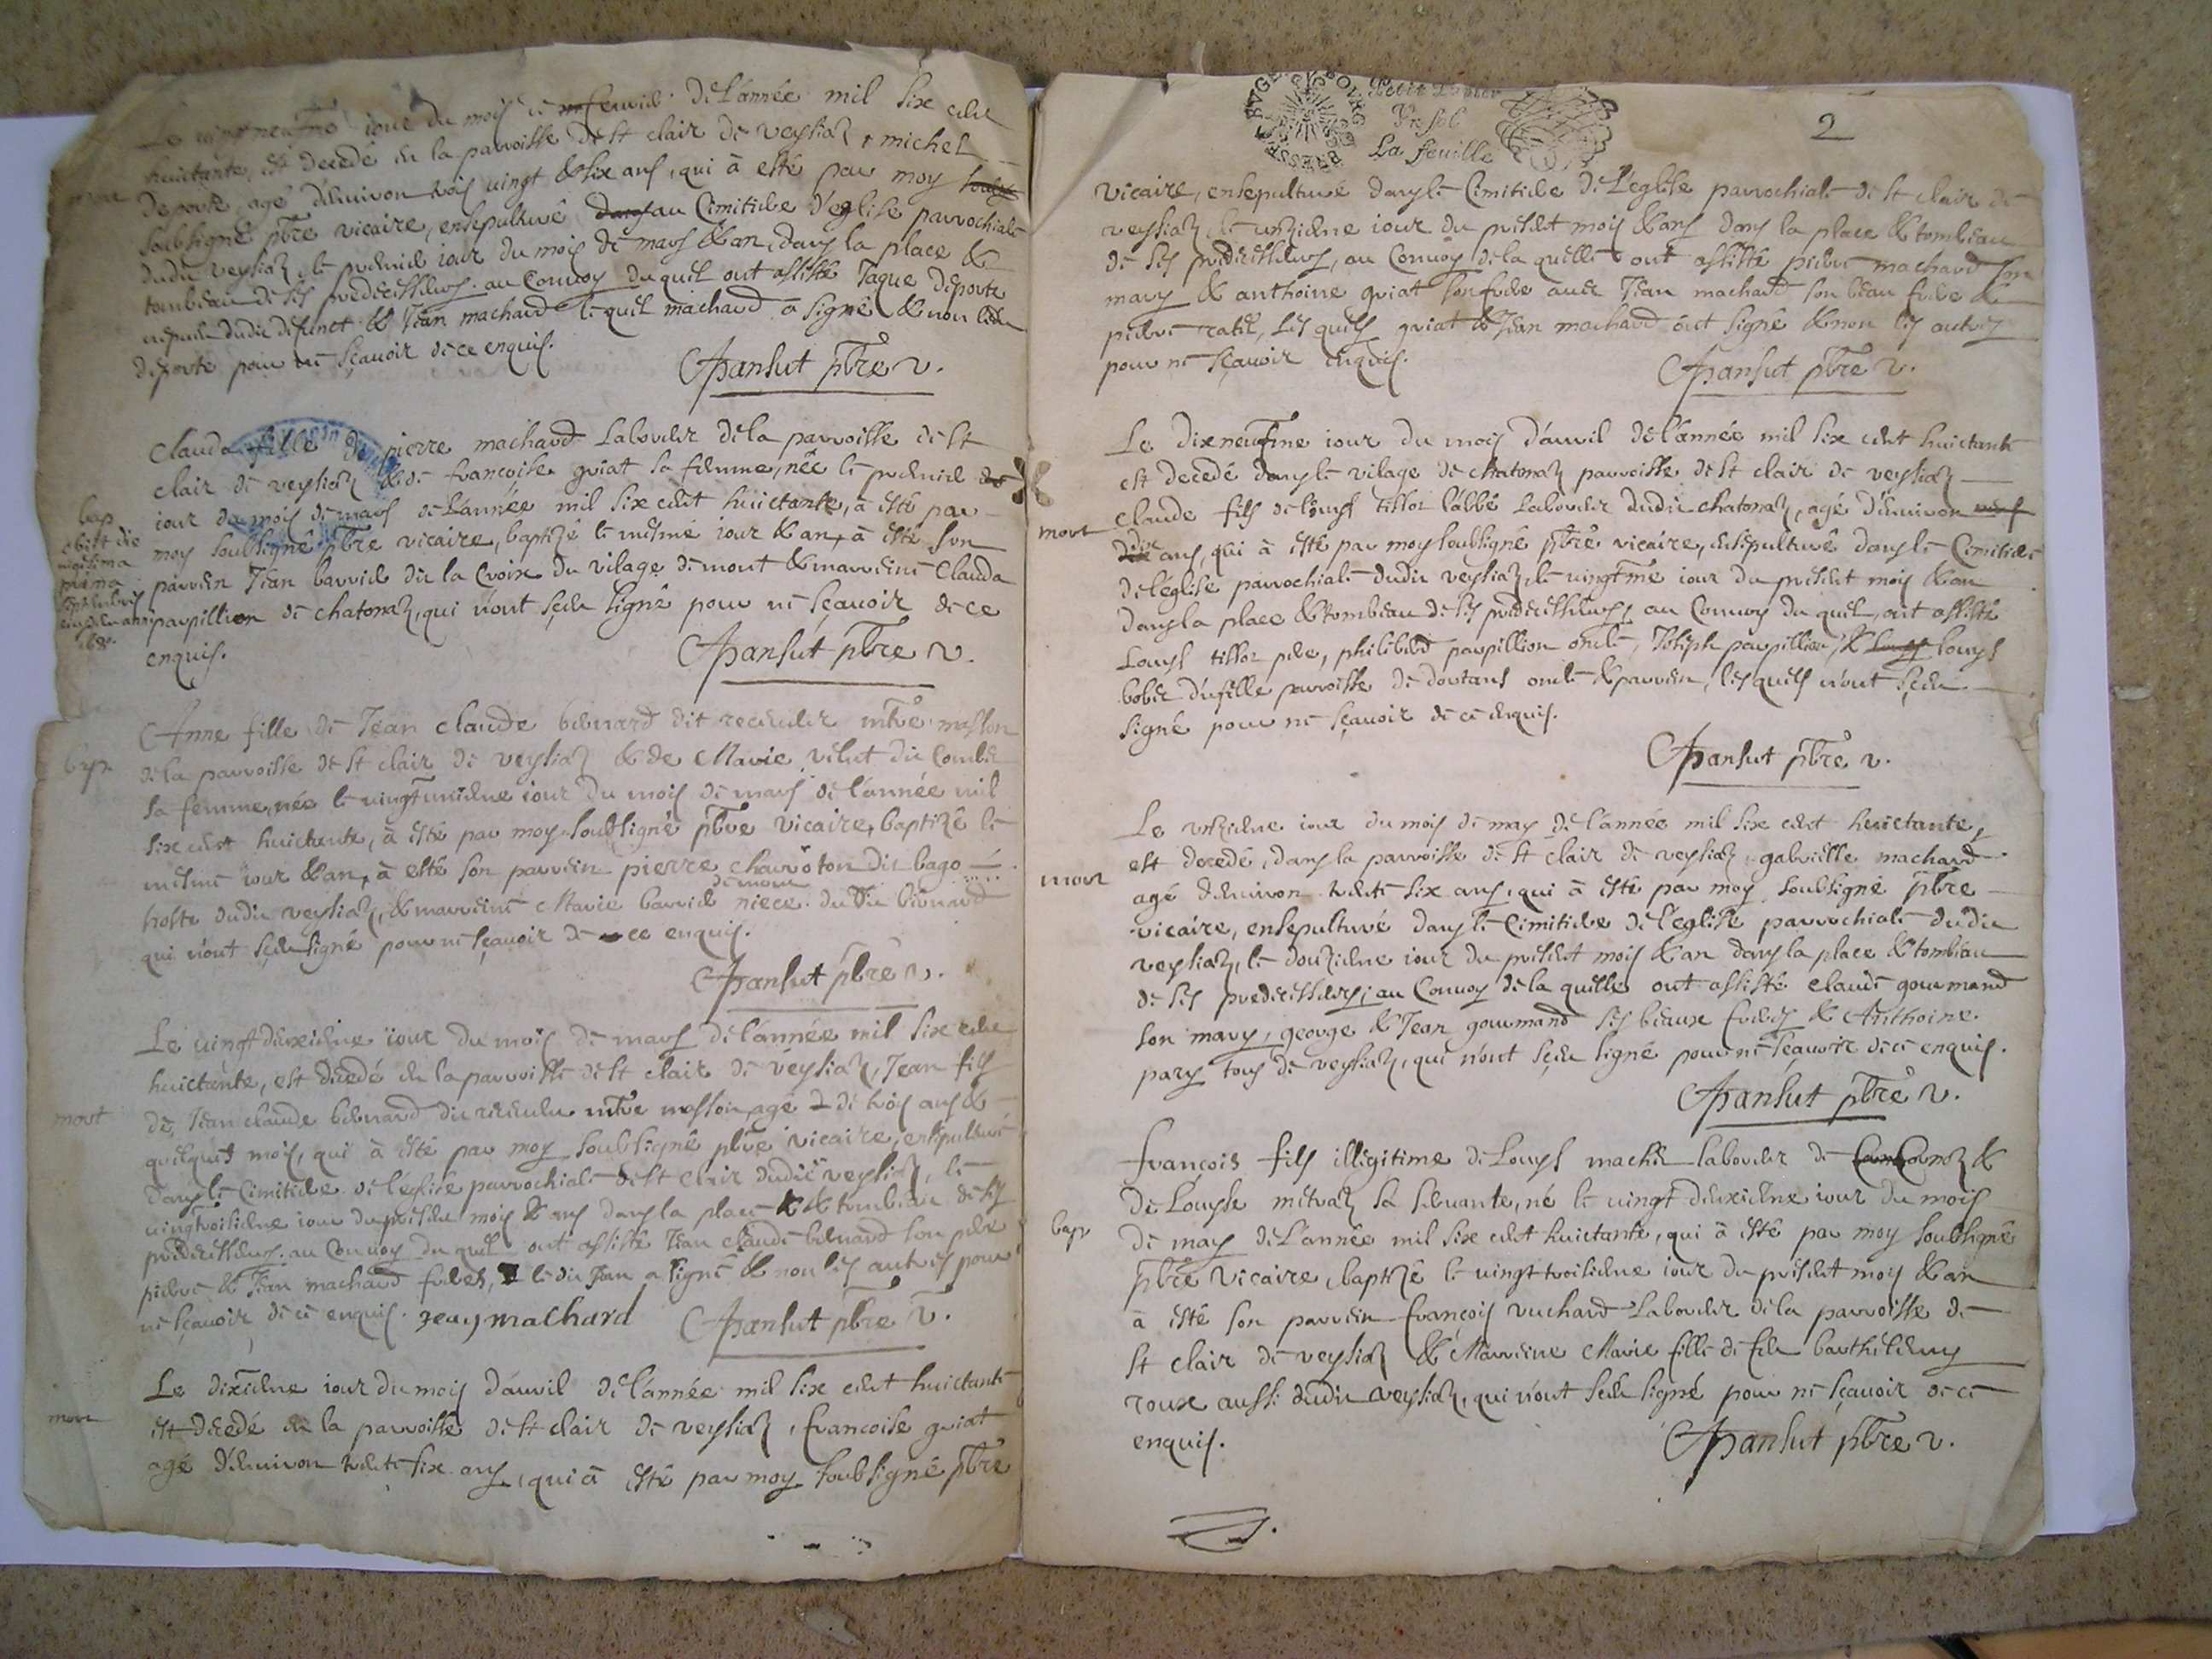 Le vingt neufme iour du mois de feuvrier de L'année mil six cent
huictante, est decedé en la parroisse de st clair de veysiaz, michel
deporte, agé d'enuiron trois vingt & six ans, qui à esté par moy
soubsigné pbre vicaire, ensepulturé au Cimitiere d'eglise parrochiale
dudit veysiaz, le premier iour du mois de mars & an, dans la place &
tombeau de ses predecesseurs. au Conuoy du quel ont assisté Jaque deporte
nepueu dudit defunct & Jean machard le quel machard a signé & non ledit
deporte pour ne sçauoir de ce enquis.
Pansut pbre v.
Clauda fille de pierre machard Laboureur de la parroisse de st
clair de veysiaz & de francoise guiat sa femme, née le premier
iour du mois de mars de L'année mil six cent huictante, à esté par
moy soubsigné pbre vicaire, baptizé le mesme iour & an, à esté son
parrein Jean barrie dit la Croix du vilage de mont & marreine Clauda
parpillion de chatonaz, qui n'ont sçeu signé pour ne sçauoir de ce
enquis.
Pansut pbre v.
bap
obiit die
vigesima
prima
septembris
eiusdem anni
1680.
Anne fille de Jean claude bernard dit receueur mtre masson
de la parroisse de st clair de veysiaz & de Marie velut du Combet
sa femme, née le vingt unieme iour du mois de mars de l'année mil
six cent huictante, à esté par moy soubsigné pbre vicaire, baptizé le
mesme iour & an, à esté son parrein pierre charroton dit bago
hoste dudit veysiaz, & marreine Marie barrie de mont niece dudit bernard
qui n'ont sçeu signé pour ne sçauoir de ce enquis.
Pansut pbre v.
bap
Le vingt deuxieme iour du mois de mars de l'année mil six cent
huictante, est decedé en la parroisse de st clair de veysiaz, Jean fils
de Jean claude bernard dit receueur mtre masson, agé de trois ans &
quelques mois, qui à esté par moy soubsigné pbre vicaire, ensepulturé
dans le Cimitiere de l'eglise parrochiale de st clair dudit veysiaz, le
vingt troisieme iour du present mois & ans dans la place & tombeau de ses
predecesseurs. au Conuoy du quel ont assisté Jean claude bernard son pere
pierre & Jean machard freres, le dit Jean a signé & non les autres pour
ne sçauoir de ce enquis. Jean machard Pansut pbre v.
mort
Le dixieme iour du mois d'auril de l'année mil six cent huictante
est decedé en la parroisse de st clair de veysiaz, francoise guiat
agé d'enuiron trente six ans, qui à esté par moy soubsigné pbre
mort
La feuille
2
vicaire, ensepulturé dans le Cimitiere de L'eglise parrochiale de st clair de
veysiaz, le unzieme iour du present mois & ans dans la place & tombeau
de ses predecesseurs, au Conuoy de la quelle ont assisté pierre machard son
mary & anthoine guiat son frere auec Jean machard son beau frere &
pierre ratel, les quels guiat & Jean machard ont signé & non les autres
pour ne sçauoir enquis.
Pansut pbre v.
Le dix neufme iour du mois d'auril de l'année mil six cent huictante
est decedé dans le vilage de chatonaz parroisse de st clair de veysiaz
claude fils de Louys tissot l'abbé Laboureur dudit chatonaz, agé d'enuiron
dix ans, qui à esté par moy soubsigné pbre vicaire, ensepulturé dans le Cimitiere
de l'eglise parrochiale dudit veysiaz, le vingtme iour du present mois & an
dans la place & tombeau de ses predecesseurs, au Conuoy du quel, ont assisté
Louys tissot pere, philiberd parpillion oncle, Joseph parpillion, & louys
bober d'ufelle parroisse de dortans oncle & parrein, les quels n'ont sçeu
signé pour ne sçauoir de ce enquis.
Pansut pbre v.
mort
Le unzieme iour du mois de may de l'année mil six cent huictante,
est decedé, dans la parroisse de st clair de veysiaz, gabrielle machard
agé d'enuiron trente six ans, qui à esté par moy soubsigné pbre
vicaire, ensepulturé dans le Cimitiere de l'eglise parrochiale dudit
veysiaz, le douzieme iour du present mois & an dans la place & tombeau
de ses predecesseurs; au Conuoy de la quelle ont assisté claude gourmand
son mary, george & Jean gourmand ses beaux freres & Anthoine
pary tous de veysiaz, qui n'ont sçeu signé pour ne sçauoir de ce enquis.
Pansut pbre v.
mort
françois fils illegitime de Louys machet laboureur de &
de Louyse metraz sa seruante, né le vingt deuxieme iour du mois
de may de L'année mil six cent huictante, qui à esté par moy soubsigné
pbre vicaire, baptizé le vingt troisieme iour du present mois & an
à esté son parrein françois vuchard Laboureur de la parroisse de
st clair de veysiaz & Marreine Marie fille de feu barthelemy
roux aussi dudit veysiaz, qui n'ont sçeu signé pour ne sçauoir de ce
enquis.
Pansut pbre v.
bap